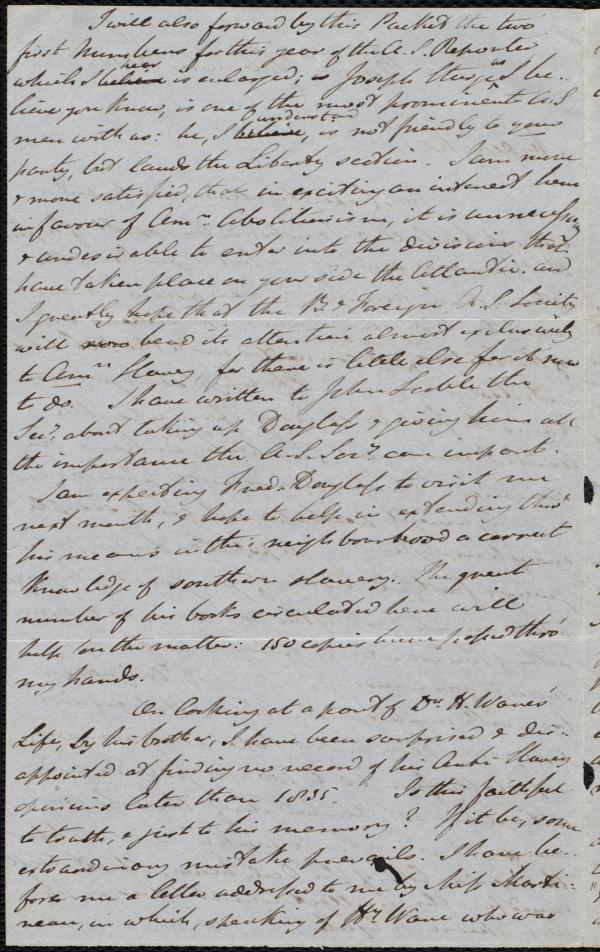 I will also forward by this Packet the two
first Numbers for this year of the A. S. Reporter
which I hear believe is enlarged; Joseph Sturge, as I be-
lieve you know, is one of the most prominent A. S
men with us: he, I understand believe, is not friendly to your
party, but lauds the Liberty section. I am more
& more satisfied, that in exciting an interest here
in favour of Amn. Abolitionism, it is unnecessary
& undesirable to enter into the divisions that
have taken place on your side the Atlantic. and
I greatly hope that the B. & Foreign A. S. Society
will now bend its attention almost exclusively
to Amn. Slavery for there is little else for it now
to do. I have written to John Scoble the
Secy. about taking up Douglass & giving him all
the importance the A. S. Socy. can impart.
I am expecting Fred. Douglass to visit me
next month, & hope to help in extending thro'
his means in this neighbourhood a correct
knowledge of southern slavery. The great
number of his books circulated here will
help on the matter: 150 copies have passed thro'
my hands.
On looking at a part of Dr. H. Ware's
Life, by his brother, I have been surprised & dis-
appointed at finding no record of his Anti Slavery
opinions later than 1835. Is this faithful
to truth, & just to his memory? If it be, some
extraordinary mistake prevails. I have be-
fore me a letter addressed to me by Miss Marti-
neau, in which, speaking of Hy. Ware who was